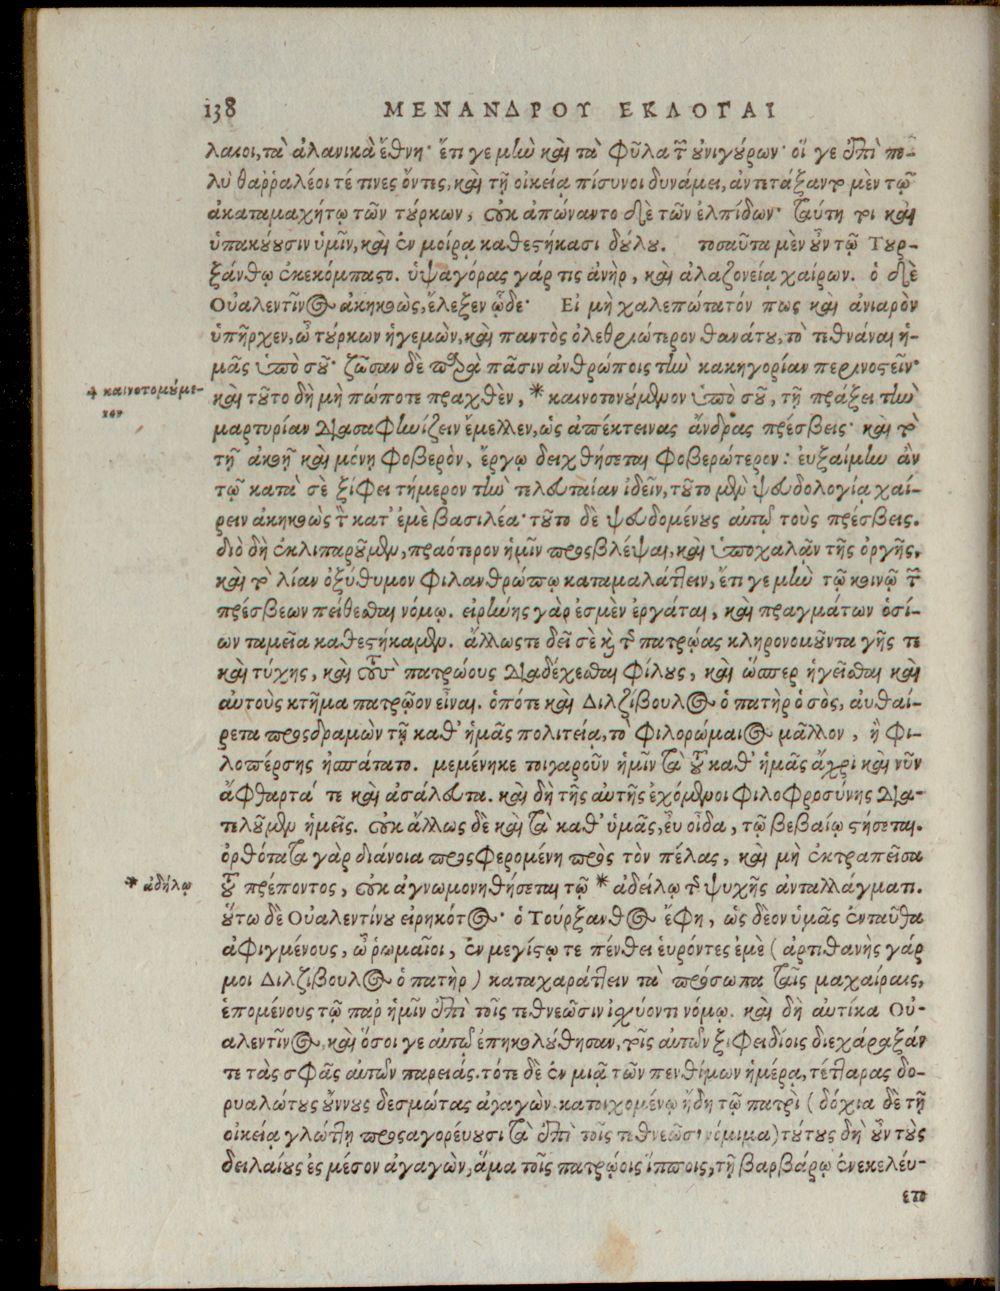 138 ΜΕΝΑΝΔΡΟΥ ΕΚΛΟΓΑΙ
λαιοι, τὰ ἀλανικὰ ἔθνη· ἔτι γε μὴν καὶ τὰ φῦλα τῶν οὐνιγούρων· οἵ γε ἐπὶ πο-
λὺ θαῤῥαλέοι τέ τινες ὄντες, καὶ τῇ οἰκείᾳ πίσυνοι δυνάμει, ἀντετάξαντο μὲν τῷ
ἀκαταμαχήτῳ τῶν τούρκων, οὐκ ἀπώναντο δὲ τῶν ἐλπίδων· ταύτῃ τοι καὶ
ὑπακούουσιν ὑμῖν, καὶ ἐν μοίρᾳ καθεστήκασι δούλου. τοσαῦτα μὲν οὖν τῷ Τουρ-
ξάνθῳ ἐκεκόμπαστο. ὑψαγόρας γάρ τις ἀνὴρ, καὶ ἀλαζονείᾳ χαίρων. ὁ δὲ
Οὐαλεντῖνος ἀκηκοὼς, ἔλεξεν ᾧδε· Εἰ μὴ χαλεπώτατόν πως καὶ ἀνιαρὸν
ὑπῆρχεν, ὦ τούρκων ἡγεμὼν, καὶ παντὸς ὀλεθριώτερον θανάτου, τὸ τεθνάναι ἡ-
μᾶς ὑπὸ σοῦ· ζῶσαν δὲ παρὰ πᾶσιν ἀνθρώποις τὴν κακηγορίαν περινοστεῖν·
καὶ τοῦτο δὴ μὴ πώποτε πραχθὲν, * καινοτονούμενον ὑπὸ σοῦ, τῇ πράξει τὴν
* καινοτομούμε-
νον
μαρτυρίαν διασαφηνίζειν ἔμελλεν, ὡς ἀπέκτεινας ἄνδρας πρέσβεις· καὶ τὸ
τῇ ἀκοῇ καὶ μόνῃ φοβερὸν, ἔργῳ δειχθήσεται φοβερώτερον: εὐξαίμην ἂν
τῷ κατὰ σὲ ξίφει τήμερον τὴν τελευταίαν ἰδεῖν, τοῦτο μὲν ψευδολογίᾳ χαί-
ρειν ἀκηκοὼς τὸν κατ' ἐμὲ βασιλέα· τοῦτο δὲ ψευδομένους αὐτῷ τοὺς πρέσβεις.
διὸ δὴ ἐκλιπαροῦμεν, πραότερον ἡμῖν προσβλέψαι, καὶ ὑποχαλᾷν τῆς ὀργῆς,
καὶ τὸ λίαν ὀξύθυμον φιλανθρώπῳ καταμαλάττειν, ἔτι γε μὴν τῷ κοινῷ τῶν
πρέσβεων πείθεσθαι νόμῳ. εἰρήνης γὰρ ἐσμὲν ἐργάται, καὶ πραγμάτων ὁσί-
ων ταμεῖα καθεστήκαμεν. ἄλλωστε δεῖ σὲ καὶ τῆς πατρῴας κληρονομοῦντα γῆς τε
καὶ τύχης, καὶ τοὺς πατρώους διαδέχεσθαι φίλους, καὶ ὥσπερ ἡγεῖσθαι καὶ
αὐτοὺς κτῆμα πατρῷον εἶναι. ὁπότε καὶ Διλζίβουλος ὁ πατὴρ ὁ σὸς, αὐθαί-
ρετα προσδραμὼν τῇ καθ' ἡμᾶς πολιτείᾳ, τὸ φιλορώμαιος μᾶλλον, ἢ φι-
λοπέρσης ἠσπάσατο. μεμένηκε τοιγαροῦν ἡμῖν τὰ τοῦ καθ' ἡμᾶς ἄχρι καὶ νῦν
ἄφθαρτά τε καὶ ἀσάλευτα. καὶ δὴ τῆς αὐτῆς ἐχόμενοι φιλοφροσύνης δια-
τελοῦμεν ἡμεῖς. οὐκ ἄλλως δὲ καὶ τὰ καθ' ὑμᾶς, εὖ οἶδα, τῷ βεβαίῳ στήσεται.
ὀρθότατα γὰρ διάνοια προσφερομένη πρὸς τὸν πέλας, καὶ μὴ ἐκτραπεῖσα
τοῦ πρέποντος, οὐκ ἀγνωμονηθήσεται τῷ * ἀδείλῳ τῆς ψυχῆς ἀνταλλάγματι.
* ἀδήλῳ
οὕτω δὲ Οὐαλεντίνου εἰρηκότος· ὁ Τούρξανθος ἔφη, ὡς δεον ὑμᾶς ἐνταῦθα
ἀφιγμένους, ὦ ῥωμαῖοι, ἐν μεγίστῳ τε πένθει εὑρόντες ἐμὲ (ἀρτιθανὴς γάρ
μοι Διλζίβουλος ὁ πατὴρ) καταχαράττειν τὰ πρόσωπα ταῖς μαχαίραις,
ἑπομένους τῷ παρ' ἡμῖν ἐπὶ τοῖς τεθνεῶσιν ἰσχύοντι νόμῳ. καὶ δὴ αὐτίκα Οὐ-
αλεντῖνος, καὶ ὅσοι γε αὐτῷ ἐπηκολούθησαν, τοῖς αὐτῶν ξιφειδίοις διεχάραξάν
τε τὰς σφᾶς αὐτῶν παρειάς. τότε δὲ ἐν μιᾷ τῶν πενθίμων ἡμέρᾳ, τέτταρας δο-
ρυαλώτους οὔννους δεσμώτας ἀγαγὼν κατοιχομένῳ ἤδη τῷ πατρὶ (δόχια δὲ τῇ
οἰκείᾳ γλώττῃ προσαγορεύουσι τὰ ἐπὶ τοῖς τεθνεῶσι νόμιμα) τούτους δὴ οὖν τοὺς
δειλαίους ἐς μέσον ἀγαγὼν, ἅμα τοῖς πατρῴοις ἵπποις, τῇ βαρβάρῳ ἐνεκελέυ-
ετο